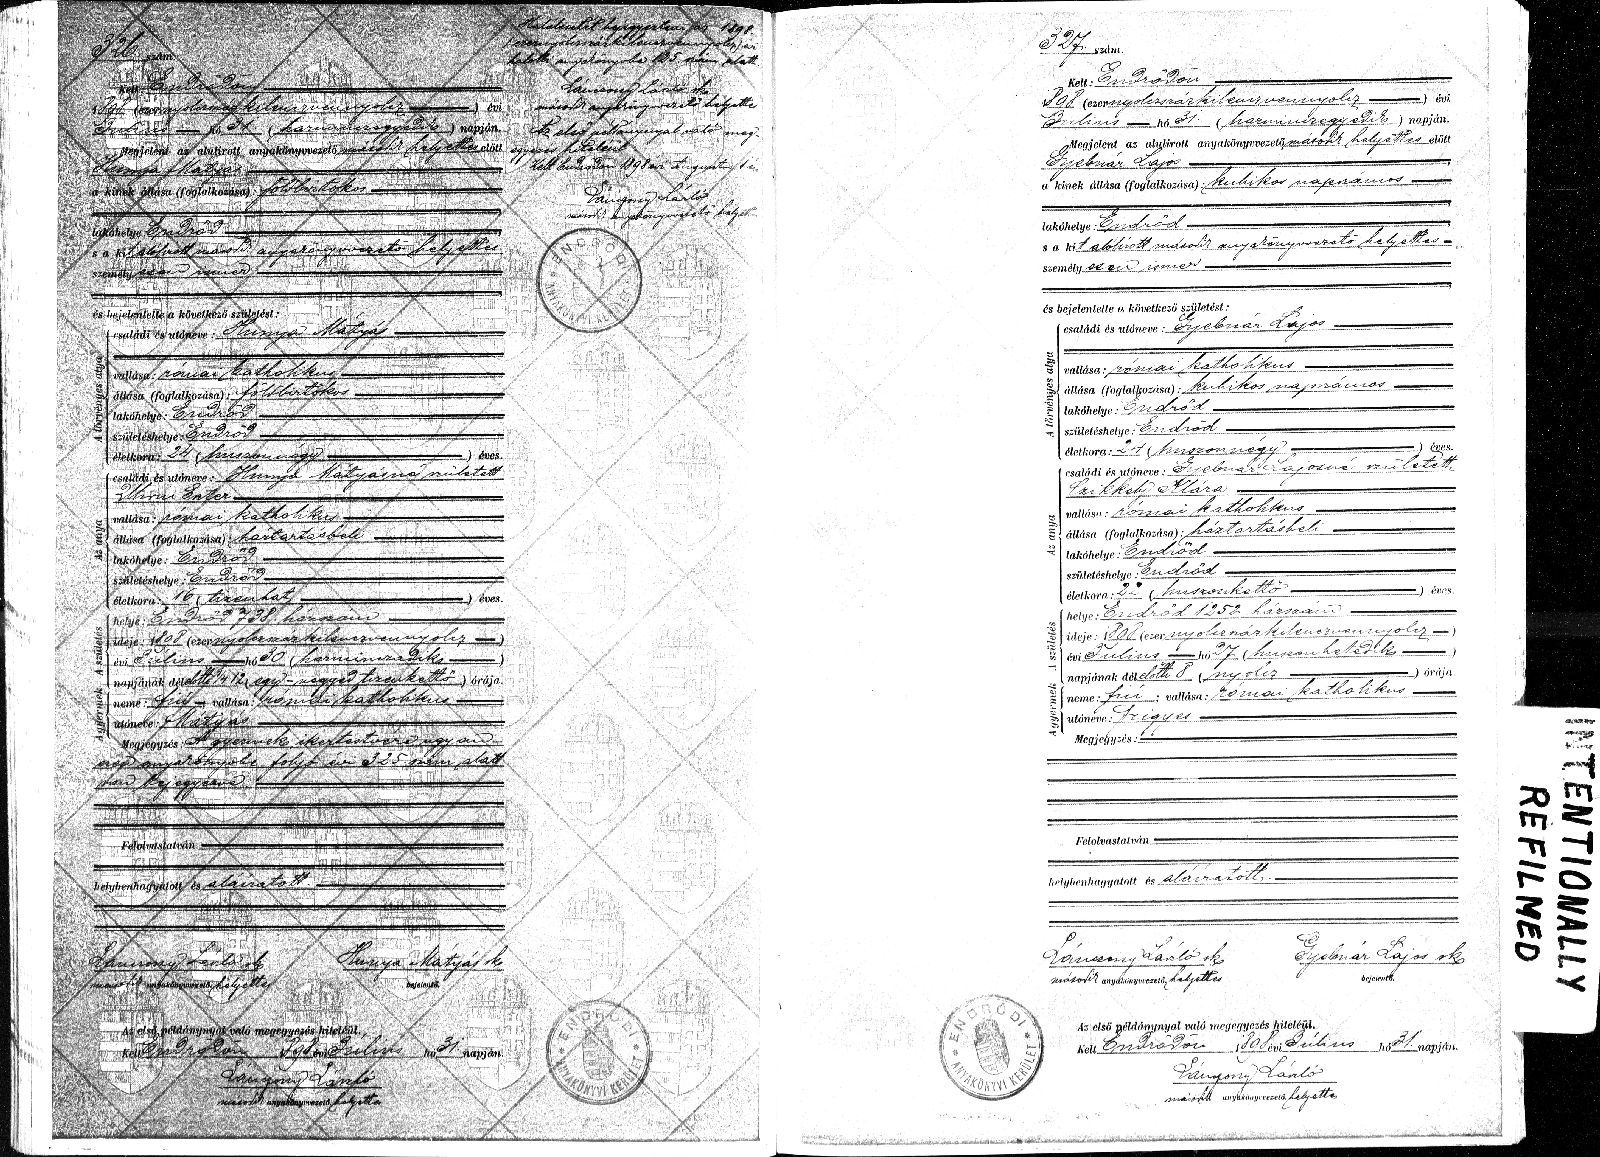 326 szám.
Kelt: Endrődön
1898 (ezernyolczszázkilenczvennyolcz) évi
Julius hó 31. (harminczegyedik) napján.
Megjelent az alulirott anyakönyvvezető másodk helyettes előtt
Hunya Mátyás
a kinek állása (foglalkozása): földbirtokos
lakóhelye Endrőd
s a kit alólirott másodk anyakönyvvezető helyettes
személyesen ismer
és bejelentette a következő születést:
A törvényes atya
családi és utóneve: Hunya Mátyás
vallása: római katholikus
állása (foglalkozása): földbirtokos
lakóhelye: Endrőd
születéshelye: Endrőd
életkora: 24 (huszonnégy) éves.
Az anya
családi és utóneve: Hunya Mátyásné született
Eszter
vallása: római katholikus
állása (foglalkozása): háztartásbeli
lakóhelye: Endrőd
születéshelye: Endrőd
életkora: 16 (tizenhat) éves.
A születés
helye: Endrőd 738 házszám
ideje: 1898 (ezernyolczszázkilenczvennyolcz)
évi Julius hó 30 (harminczadik)
napjának délelőtti 1/4 12 (egy-negyed tizenkettő) órája.
A gyermek
neme: fiú vallása: római katholikus
utóneve: Mátyás
Megjegyzés: A gyermek ikertestvére ugyan
ezen anyakönyvbe folyó évi 325 szám alatt
van bejegyezve
Felolvastatván
helybenhagyatott és aláiratott.
László sk
másodk anyakönyvvezető helyettes
Hunya Mátyás sk
bejelentő.
Az első példánynyal való megegyezés hiteléül.
Kelt Endrődön 1898 évi Julius hó 31 napján.
László
másodk anyakönyvvezető, helyettes
1898.
anyakönyvbe 105 szám alatt
László sk
másodk anyakönyvvezető helyettes
Az első példánynyal való meg-
egyezés hiteléül
Kelt Endrődön 1898
László
másodk anyakönyvvezető helyett
ENDRŐDI
ANYAKÖNYVI KERÜLET
ENDRŐDI
ANYAKÖNYVI KERÜLET
327. szám.
Kelt: Endrődön
1898 (ezernyolczszázkilenczvennyolcz) évi
Julius hó 31. (harminczegyedik) napján.
Megjelent az alulirott anyakönyvvezető másodk helyettes előtt
Gyebnár Lajos
a kinek állása (foglalkozása): kubikos napszámos
lakóhelye: Endrőd
s a kit alólirott másodk anyakönyvvezető helyettes
személyesen ismer
és bejelentette a következő születést:
A törvényes atya
családi és utóneve: Gyebnár Lajos
vallása: római katholikus
állása (foglalkozása): kubikos napszámos
lakóhelye: Endrőd
születéshelye: Endrőd
életkora: 24 (huszonnégy) éves.
Az anya
családi és utóneve: Gyebnár Lajosné született
Klára
vallása: római katholikus
állása (foglalkozása): háztartásbeli
lakóhelye: Endrőd
születéshelye: Endrőd
életkora: 22 (huszonkettő) éves.
A születés
helye: Endrőd 1252 házszám
ideje: 1898 (ezernyolczszázkilenczvennyolcz)
évi Julius hó 27 (huszonhetedik)
napjának délelőtti 8 (nyolcz) órája.
A gyermek
neme: fiú; vallása: római katholikus
utóneve:
Megjegyzés:
Felolvastatván
helybenhagyatott és aláiratott.
László sk
másodk anyakönyvvezető, helyettes
Gyebnár Lajos sk
bejelentő.
Az első példánynyal való megegyezés hiteléül.
Kelt Endrődön 1898 évi Julius hó 31. napján.
László
másodk anyakönyvvezető, helyettes
ENDRŐDI
ANYAKÖNYVI KERÜLET
INTENTIONALLY
REFILMED